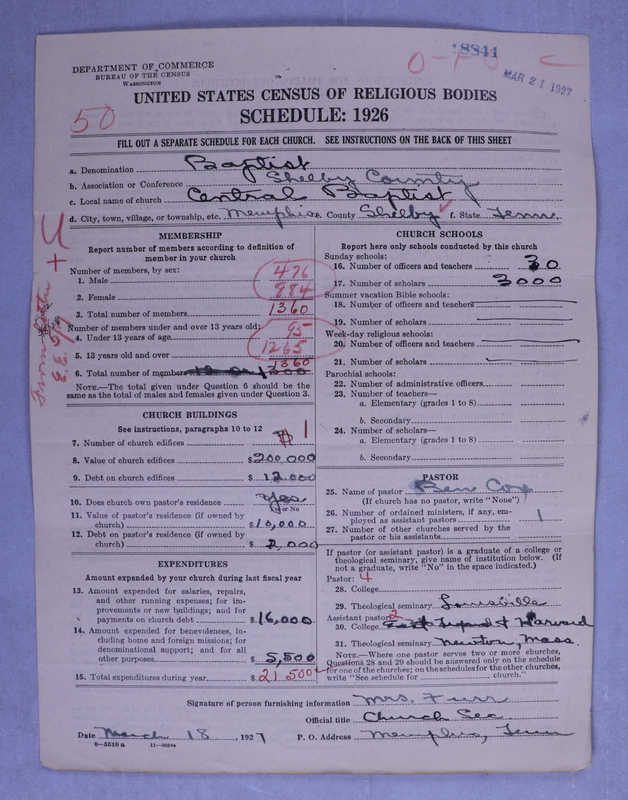 18844
DEPARTMENT OF COMMERCE
BUREAU OF THE CENSUS
WASHINGTON
MAR 21 1927
50
UNITED STATES CENSUS OF RELIGIOUS BODIES
SCHEDULE: 1926
FILL OUT A SEPARATE SCHEDULE FOR EACH CHURCH. SEE INSTRUCTIONS ON THE BACK OF THIS SHEET
a. Denomination Baptist
b. Association or Conference Shelby County
c. Local name of church Central Baptist
d. City, town, village, or township, etc. Memphis e. County Shelby f. State Tenn.
MEMBERSHIP
Report number of members according to definition of
member in your church
Number of members, by sex:
1. Male 476
2. Female 884
3. Total number of members 1360
Number of members under and over 13 years old:
4. Under 13 years of age 95
5. 13 years old and over 1265
6. Total number of members 1360
NOTE.—The total given under Question 6 should be the
same as the total of males and females given under Question 3.
CHURCH BUILDINGS
See instructions, paragraphs 10 to 12
7. Number of church edifices 1
8. Value of church edifices $200,000
9. Debt on church edifices $12,000
10. Does church own pastor's residence Yes
Yes or No
11. Value of pastor's residence (if owned by
church) $10,000
12. Debt on pastor's residence (if owned by
church) $2,000
EXPENDITURES
Amount expended by your church during last fiscal year
13. Amount expended for salaries, repairs,
and other running expenses; for im-
provements or new buildings; and for
payments on church debt $16,000
14. Amount expended for benevolences, in-
cluding home and foreign missions; for
denominational support; and for all
other purposes $5,500
15. Total expenditures during year $21 500
CHURCH SCHOOLS
Report here only schools conducted by this church
Sunday schools:
16. Number of officers and teachers 30
17. Number of scholars 3000
Summer vacation Bible schools:
18. Number of officers and teachers
19. Number of scholars
Week-day religious schools:
20. Number of officers and teachers
21. Number of scholars
Parochial schools:
22. Number of administrative officers
23. Number of teachers—
a. Elementary (grades 1 to 8)
b. Secondary
24. Number of scholars—
a. Elementary (grades 1 to 8)
b. Secondary
PASTOR
25. Name of pastor Ben Cox
(If church has no pastor, write "None")
26. Number of ordained ministers, if any, em-
ployed as assistant pastors 1
27. Number of other churches served by the
pastor or his assistants
If pastor (or assistant pastor) is a graduate of a college or
theological seminary, give name of institution below. (If
not a graduate, write "No" in the space indicated.)
Pastor: 4
28. College
29. Theological seminary Louisville
Assistant pastor: 2
30. College & Harvard
31. Theological seminary Newton, Mass.
NOTE.—Where one pastor serves two or more churches,
Questions 28 and 29 should be answered only on the schedule
for one of the churches; on the schedules for the other churches,
write "See schedule for church."
Signature of person furnishing information Mrs. Furr
Official title Church Sec
Date March 18, 1927 P. O. Address Memphis, Tenn
8—5518 a 11—9554a